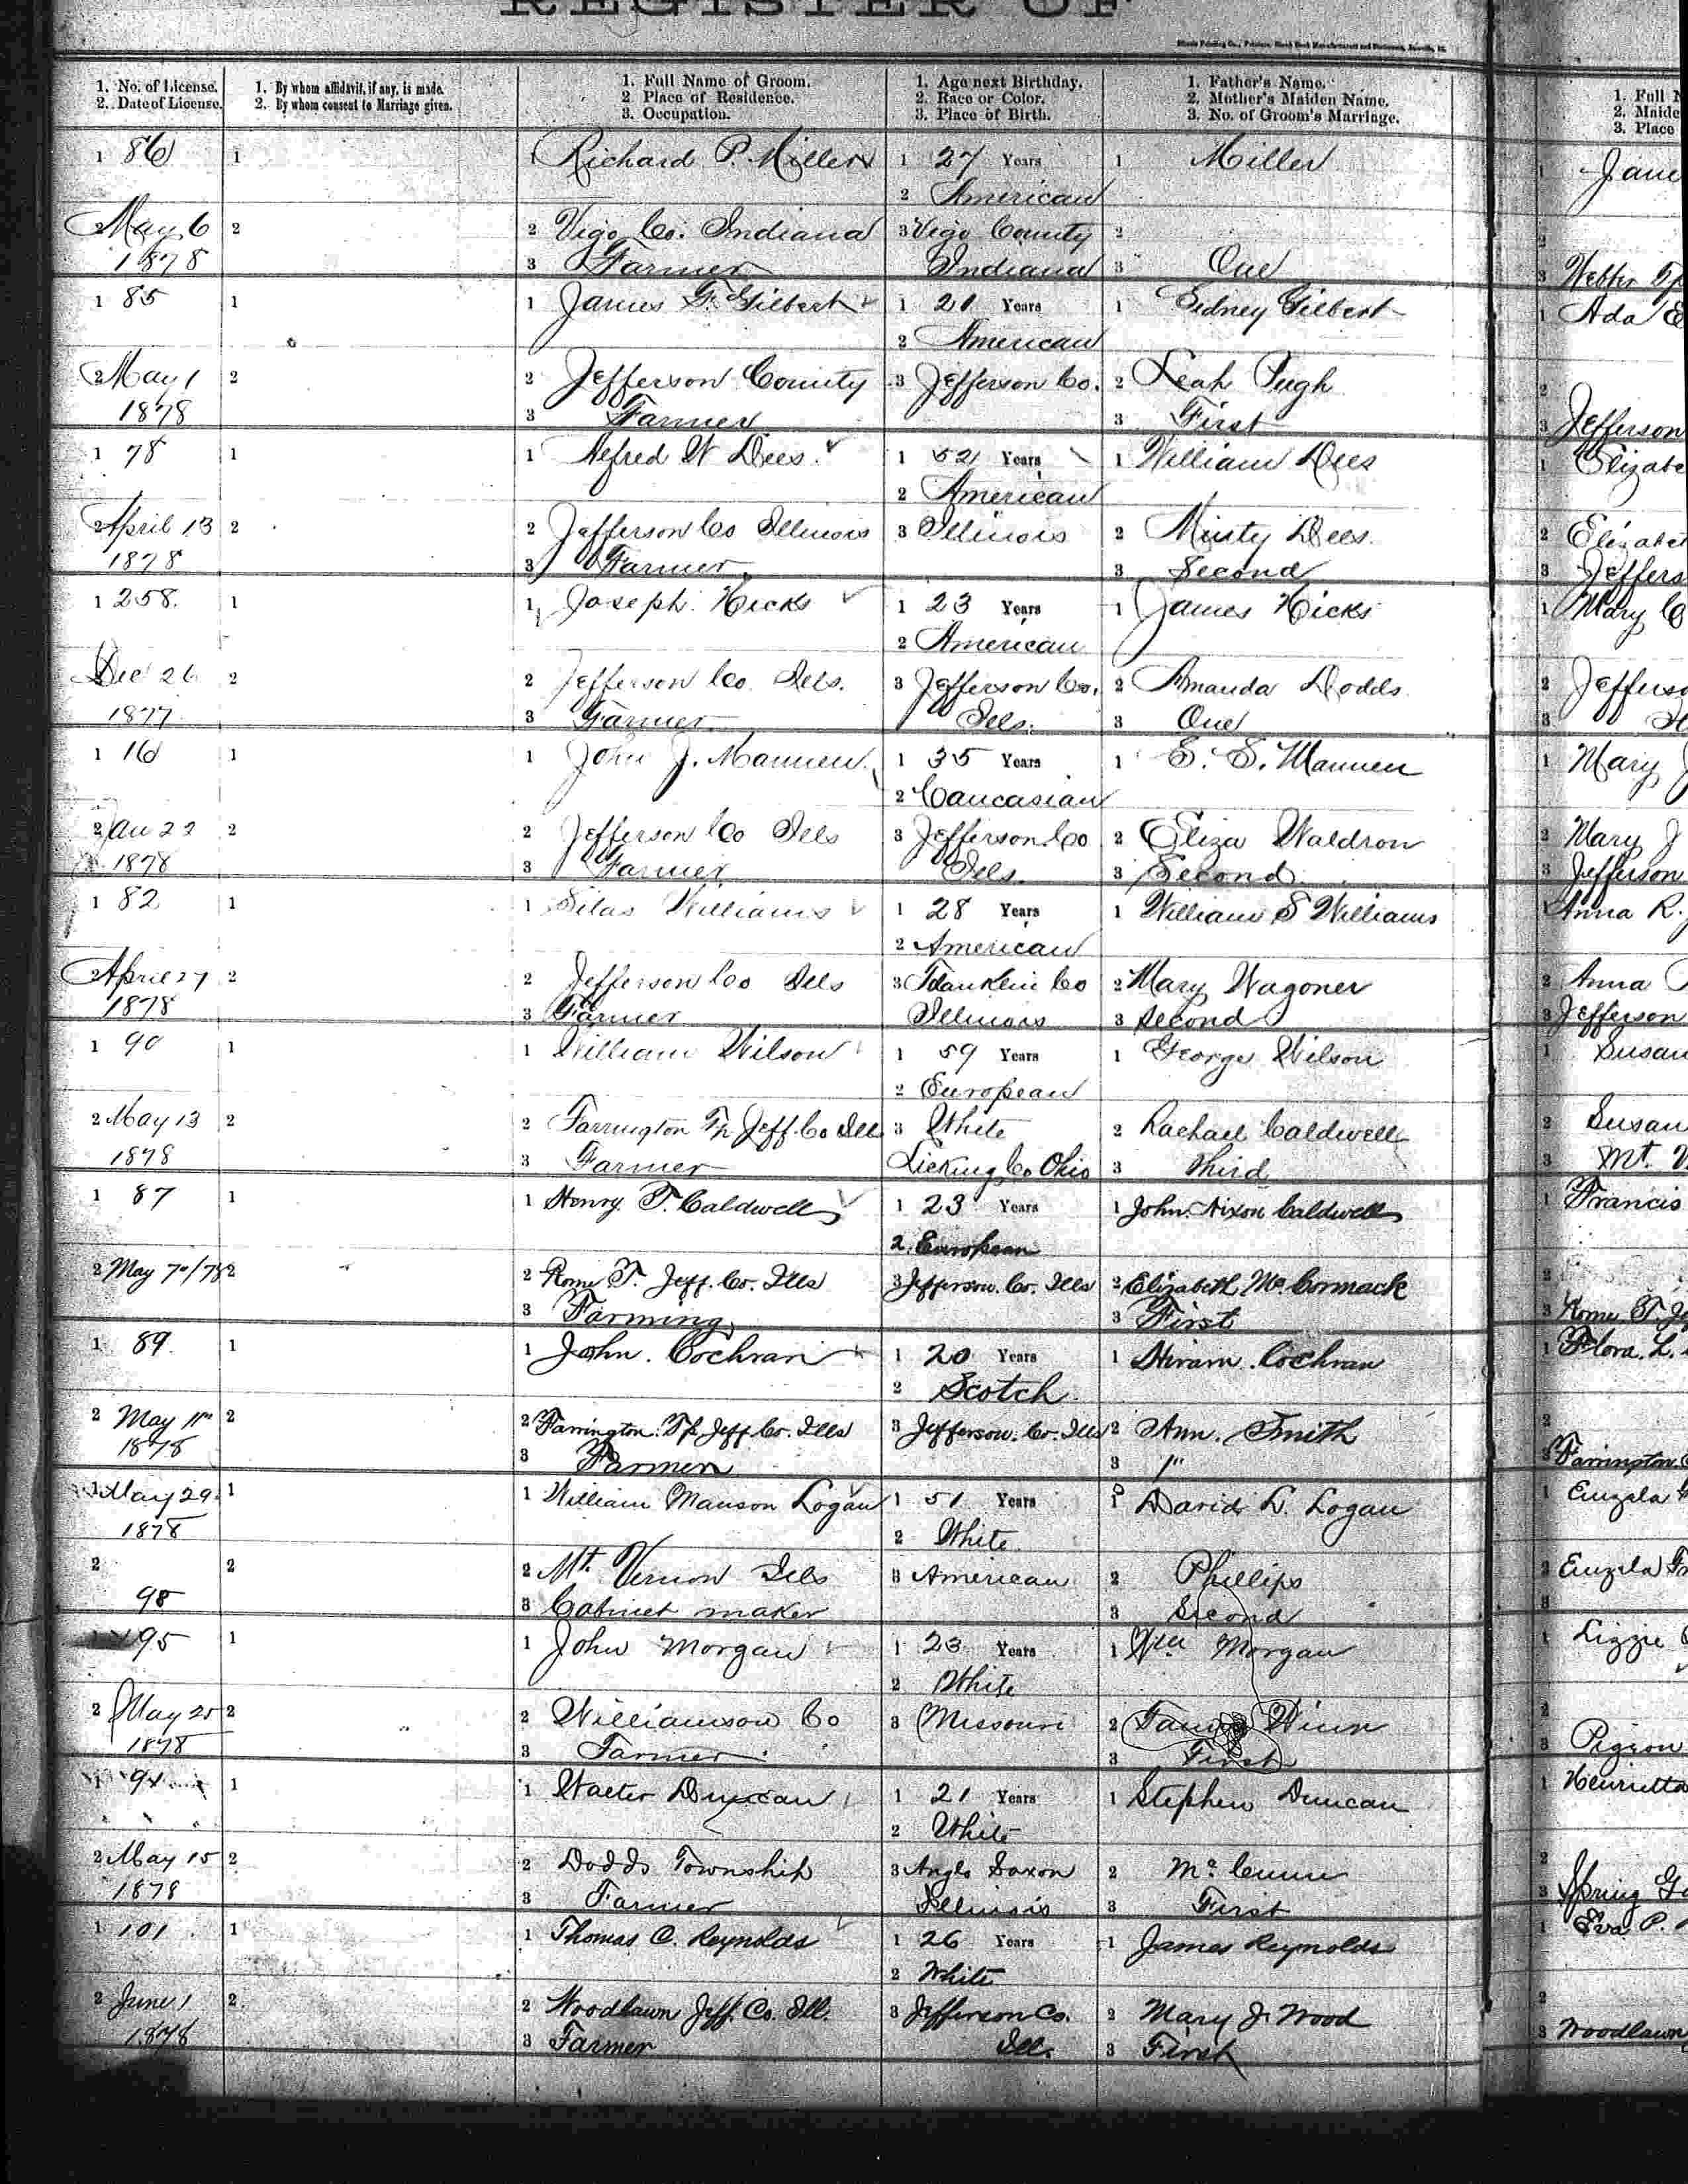 REGISTER OF
1. No. of License.
2. Date of License.
1. By whom affidavit, if any, is made.
2. By whom consent to Marriage given.
1. Full Name of Groom.
2. Place of Residence.
3. Occupation.
1. Age next Birthday.
2. Race or Color.
3. Place of Birth.
1. Father's Name.
2. Mother's Maiden Name.
3. No. of Groom's Marriage.
1. Full
2. Maide
3. Place
1 86 1 1 Richard P. Miller 1 27 Years 1 Miller 1 Jane
2 American
2 May 6 2 2 Vigo Co. Indiana 3 Vigo County 2 2
1878 3 Farmer Indiana 3 One 3 Webber Tp
1 85 1 1 James F. Gilbert 1 21 Years 1 Sidney Gilbert 1 Ada E
2 American
2 May 1 2 2 Jefferson County 3 Jefferson Co. 2 Leah Pugh 2
1878 3 Farmer 3 First 3 Jefferson
1 78 1 1 Alfred W Dees 1 52 Years 1 William Dees 1 Elizabe
2 American
2 April 13 2 2 Jefferson Co Illinois 3 Illinois 2 Minty Dees 2 Elizabet
1878 3 Farmer 3 Second 3 Jeffers
1 258. 1 1 Joseph Hicks 1 23 Years 1 James Hicks 1 Mary C
2 American
Dec 26 2 2 Jefferson Co Ills. 3 Jefferson Co. 2 Amanda Dodds 2 Jefferso
1877 3 Farmer Ills. 3 One 3
1 16 1 1 John J. Mannen 1 35 Years 1 S. S. Mannen 1 Mary J
2 Caucasian
2 Jan 22 2 2 Jefferson Co Ills 3 Jefferson Co 2 Eliza Waldron 2 Mary J
1878 3 Farmer Ills. 3 Second 3 Jefferson
1 82 1 1 Silas Williams 1 28 Years 1 William S Williams 1 Anna R.
2 American
2 April 27 2 2 Jefferson Co Ills 3 Franklin Co 2 Mary Wagoner 2 Anna
1878 3 Farmer Illinois 3 Second 3 Jefferson
1 90 1 1 William Wilson 1 59 Years 1 George Wilson 1 Susan
2 European
2 May 13 2 2 Farrington Tp Jeff. Co Ill 3 White 2 Rachael Caldwell 2 Susan
1878 3 Farmer Licking Co Ohio 3 Third 3 Mt. V
1 87 1 1 Henry T. Caldwell 1 23 Years 1 John Nixon Caldwell 1 Francis
2 European
2 May 7th/78 2 2 Rome T. Jeff. Co. Ills 3 Jefferson. Co. Ills 2 Elizabeth Mc.Cormack 2
3 Farming 3 First 3 Rome T. Je
1 89. 1 1 John. Cochran 1 20 Years 1 Hiram. Cochran 1 Flora. L.
2 Scotch
2 May 11th 2 2 Farrington. Tp. Jeff. Co. Ills 3 Jefferson. Co. Ills 2 Ann. Smith 2
1878 3 Farmer 3 1st 3 Farrington.
1 May 29. 1 1 William Manson Logan 1 51 Years 1 David L. Logan 1
1878 2 White
2 2 2 Mt. Vernon Ills 3 American 2 Phillips 2
98 3 Cabinet maker 3 Second 3
95 1 1 John Morgan 1 23 Years 1 Wm Morgan 1 Lizzie
2 White
2 May 25 2 2 Williamson Co 3 Missouri 2 Winn 2
1878 3 Farmer 3 First 3 Pigeon
1 94 1 1 Walter Duncan 1 21 Years 1 Stephen Duncan 1 Henrietta
2 White
2 May 15 2 2 Dodds Township 3 Anglo Saxon 2 2
1878 3 Farmer Illinois 3 First 3 Spring Ga
1 101 1 1 Thomas C. Reynolds 1 26 Years 1 James Reynolds 1 Eva P.
2 White
2 June 1 2 2 Woodlawn Jeff. Co. Ill. 3 Jefferson Co. 2 Mary J. Wood 2
1878 3 Farmer Ill. 3 First 3 Woodlawn